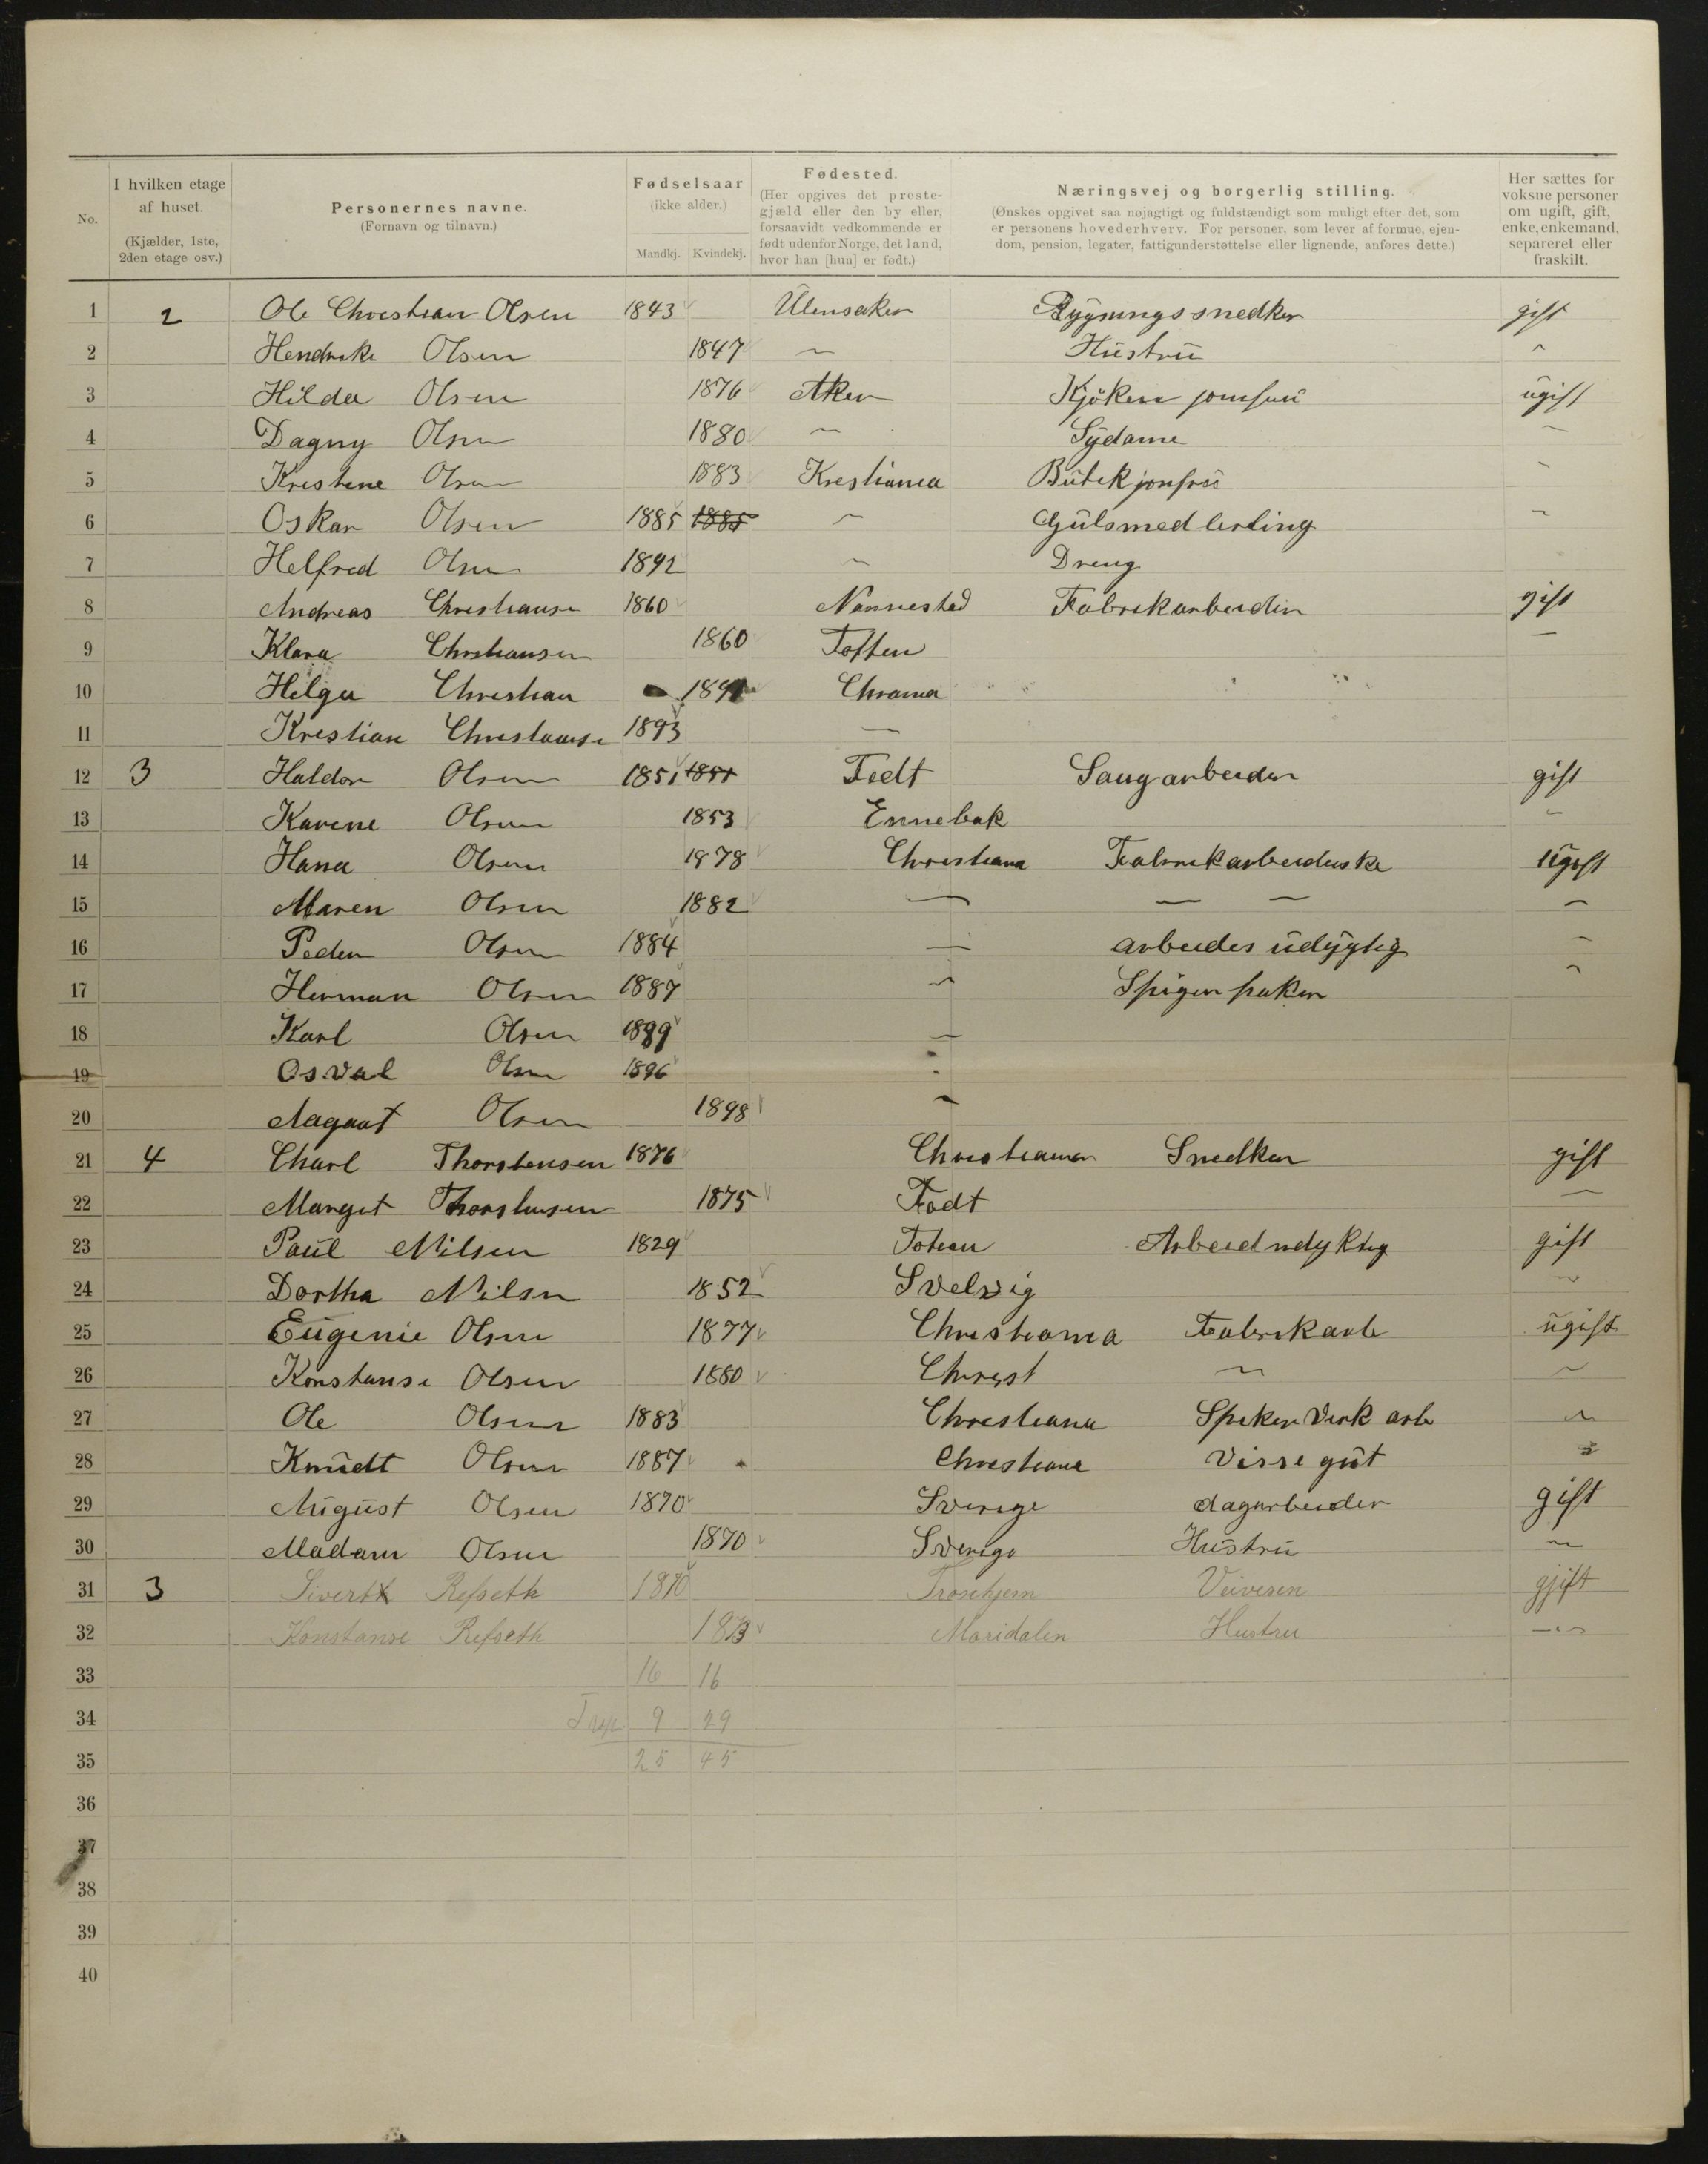 No.
I hvilken etage af huset. (Kjælder, 1ste, 2den etage osv.)
Personernes navne. (Fornavn og tilnavn.)
Fødselsaar (ikke alder.) Mandkj. Kvindekj.
Fødested. (Her opgives det prestegjæld eller den by eller, forsaavidt vedkommende er født udenfor Norge, det land, hvor han [hun] er født.)
Næringsvej og borgerlig stilling. (Ønskes opgivet saa nøjagtigt og fuldstændigt som muligt efter det, som er personens hovederhverv. For personer, som lever af formue, ejendom, pension, legater, fattigunderstøttelse eller lignende, anføres dette.)
Her sættes for voksne personer om ugift, gift, enke, enkemand, separeret eller fraskilt.
1 2 Ole Christian Olsen 1843 Ulensaker Bygningssnedker gift
2 Hendrike Olsen 1847 — Hustru —
3 Hilda Olsen 1876 Aker Kjøken jomfru ugift
4 Dagny Olsen 1880 — Sydame —
5 Kristine Olsen 1883 Krestiania Butek jonfru —
6 Oskar Olsen 1885 1885 — Gulsmed lerling —
7 Helfred Olsen 1892 — Dreng
8 Andreas Christiansen 1860 Nannestad Fabrikarbeider gift
9 Klara Christiansen 1860 Toften —
10 Helga Christian 1891 Chrania
11 Kristian Christianse 1893 —
12 3 Haldor Olsen 1851 1851 Fedt Saugarbeider gift
13 Karine Olsen 1853 Ennebak —
14 Hana Olsen 1878 Christiana Fabrikarbeiderske ugift
15 Maren Olsen 1882 — — — —
16 Peder Olsen 1884 — arbeider udygtig —
17 Herman Olsen 1887 — Spiger paker —
18 Karl Olsen 1889 —
19 Osval Olsen 1896
20 Aagaat Olsen 1898 —
21 4 Charl Thorstensen 1876 Christiania Snedker gift
22 Margit Thorstensen 1875 Født —
23 Paul Nilsen 1829 Toten Arbeidudyktig gift
24 Dortha Nilsen 1852 Svelvig —
25 Eugenie Olsen 1877 Christiania Fabrikarb ugift
26 Konstanse Olsen 1880 Christ — —
27 Ole Olsen 1883 Christiana Spiker Verk arb —
28 Knudt Olsen 1887 Christiana Visse gut
29 August Olsen 1870 Sverige dagarbeider gift
30 Madam Olsen 1870 Sverige Hustru —
31 3 Sivert Refseth 1870 Trondhjem Veivesen gjift
32 Konstanse Refseth 1873 Maridalen Hustru —
33 16 16
34 Trsp 9 29
35 25 45
36
37
38
39
40